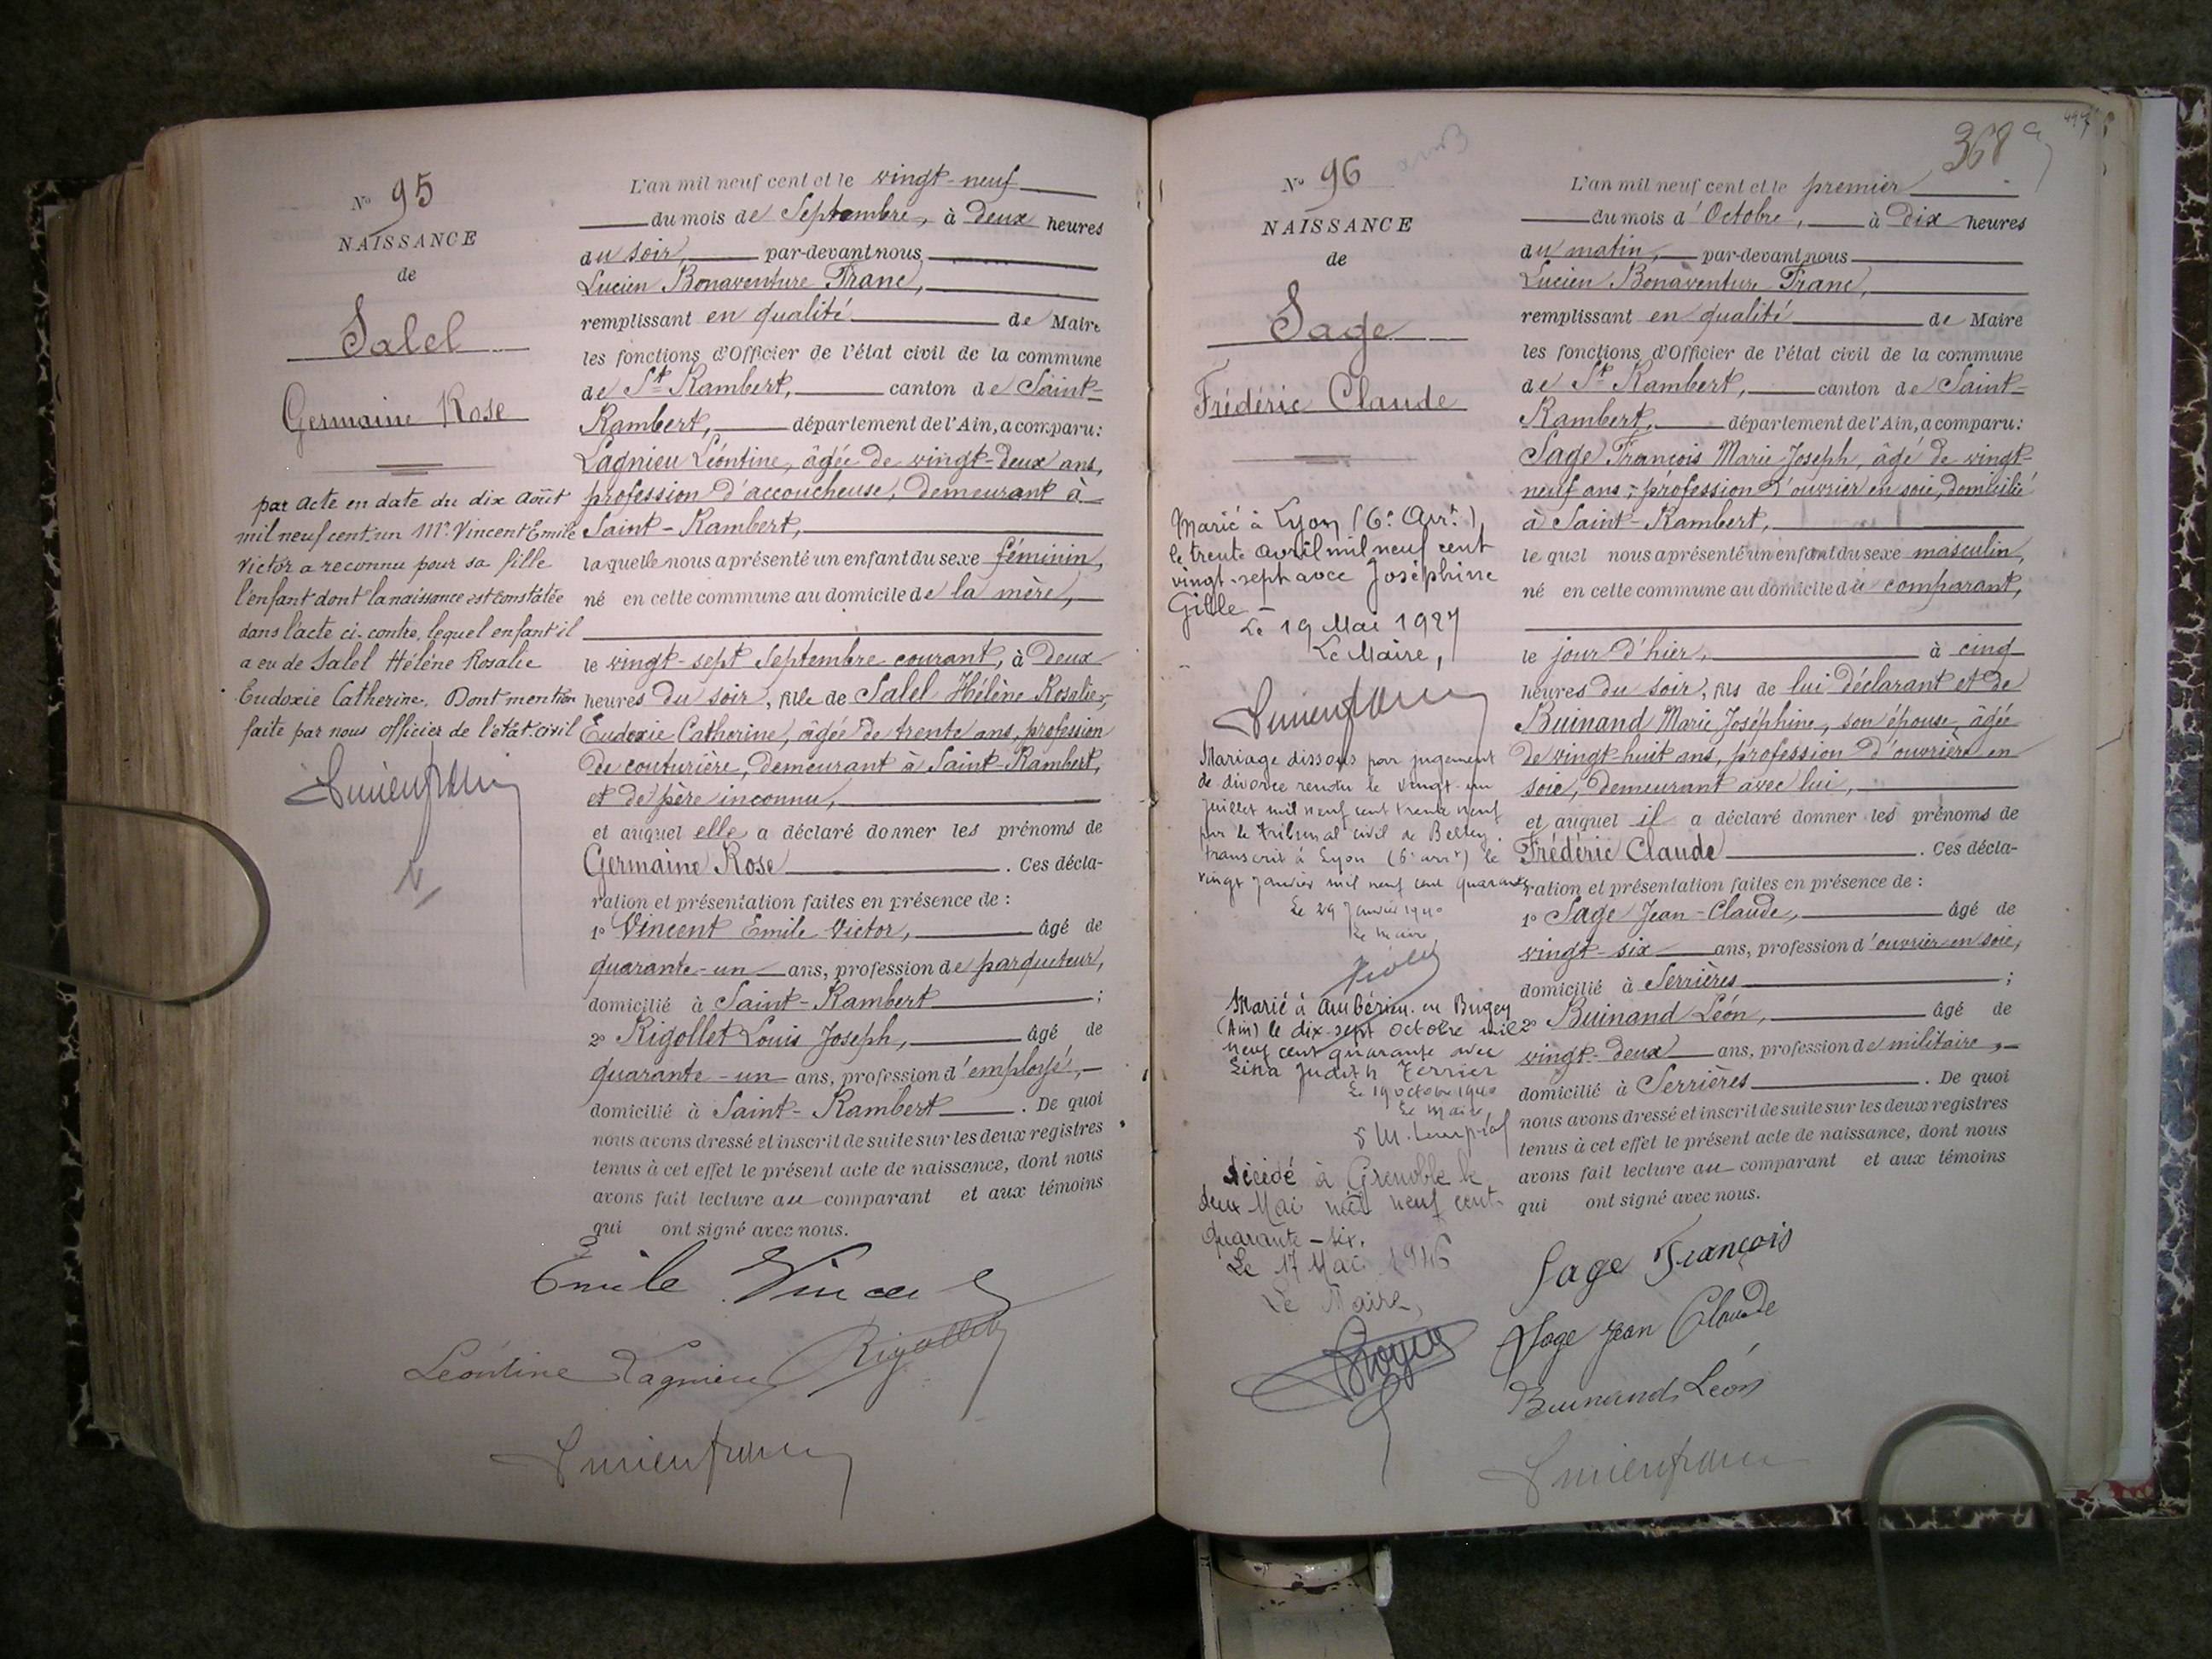 N° 95
NAISSANCE
de
Salel
Germaine Rose
par acte en date du dix Août
mil neuf cent un Mr. Vincent Emile
Victor a reconnu pour sa fille
l'enfant dont la naissance est constatée
dans l'acte ci-contre, lequel enfant il
a eu de Salel Hélène Rosalie
Eudoxie Catherine. Dont mention
faite par nous officier de l'état-civil
L'an mil neuf cent et le vingt-neuf
du mois de Septembre, à Deux heures
du soir, par-devant nous,
Lucien Bonaventure Franc,
remplissant en qualité de Maire
les fonctions d'Officier de l'état civil de la commune
de St Rambert, canton de Saint-
Rambert, département de l'Ain, a comparu:
Lagnieu Léontine, âgée de vingt-deux ans,
profession d'accoucheuse, demeurant à
Saint-Rambert,
laquelle nous a présenté un enfant du sexe féminin,
né en cette commune au domicile de la mère,
le vingt-sept Septembre courant, à Deux
heures du soir, fille de Salel Hélène Rosalie,
Eudoxie Catherine, âgée de trente ans, profession
de couturière, demeurant à Saint-Rambert,
et de père inconnu,
et auquel elle a déclaré donner les prénoms de
Germaine Rose. Ces décla-
ration et présentation faites en présence de :
1° Vincent Emile Victor, âgé de
quarante-un ans, profession de parqueteur,
domicilié à Saint-Rambert ;
2° Rigollet Louis Joseph, âgé de
quarante-un ans, profession d'employé,
domicilié à Saint-Rambert. De quoi
nous avons dressé et inscrit de suite sur les deux registres
tenus à cet effet le présent acte de naissance, dont nous
avons fait lecture au comparant et aux témoins
qui ont signé avec nous.
Emile Vincent
Léontine Lagnieu Rigollet
Lucien franc
368
497
N° 96
NAISSANCE
de
Sage
Frédéric Claude
Marié à Lyon (6e Arrt),
le trente avril mil neuf cent
vingt-sept avec Joséphine
Gille -
Le 19 Mai 1927
Le Maire,
Lucien franc
Mariage dissous par jugement
de divorce rendu le vingt-un
juillet mil neuf cent trente neuf
par le tribunal civil de Belley.
transcrit à Lyon (6e arrt) le
vingt janvier mil neuf cent quarante
Le 29 Janvier 1940
Le Maire
Marié à Ambérieu-en-Bugey
(Ain) le dix-sept Octobre mil
neuf cent quarante avec
Lina Judith Terrier
Le 19 octobre 1940
Le Maire,
Décédé à Grenoble le
deux Mai mil neuf cent-
quarante-six.
Le 17 Mai 1946
Le Maire,
L'an mil neuf cent et le premier
du mois d'Octobre, à Dix heures
du matin, par-devant nous
Lucien Bonaventure Franc,
remplissant en qualité de Maire
les fonctions d'Officier de l'état civil de la commune
de St Rambert, canton de Saint-
Rambert, département de l'Ain, a comparu:
Sage François Marie Joseph, âgé de vingt-
neuf ans, profession d'ouvrier en soie, domicilié
à Saint-Rambert,
lequel nous a présenté un enfant du sexe masculin,
né en cette commune au domicile du comparant,
le jour d'hier, à cinq
heures du soir, fils de lui déclarant et de
Buinand Marie Joséphine, son épouse, âgée
de vingt-huit ans, profession d'ouvrière en
soie, demeurant avec lui,
et auquel il a déclaré donner les prénoms de
Frédéric Claude. Ces décla-
ration et présentation faites en présence de :
1° Sage Jean-Claude, âgé de
vingt-six ans, profession d'ouvrier en soie,
domicilié à Serrières ;
2° Buinand Léon, âgé de
vingt-deux ans, profession de militaire,
domicilié à Serrières. De quoi
nous avons dressé et inscrit de suite sur les deux registres
tenus à cet effet le présent acte de naissance, dont nous
avons fait lecture au comparant et aux témoins
qui ont signé avec nous.
Sage François
Sage Jean Claude
Buinand Léon
Lucien franc